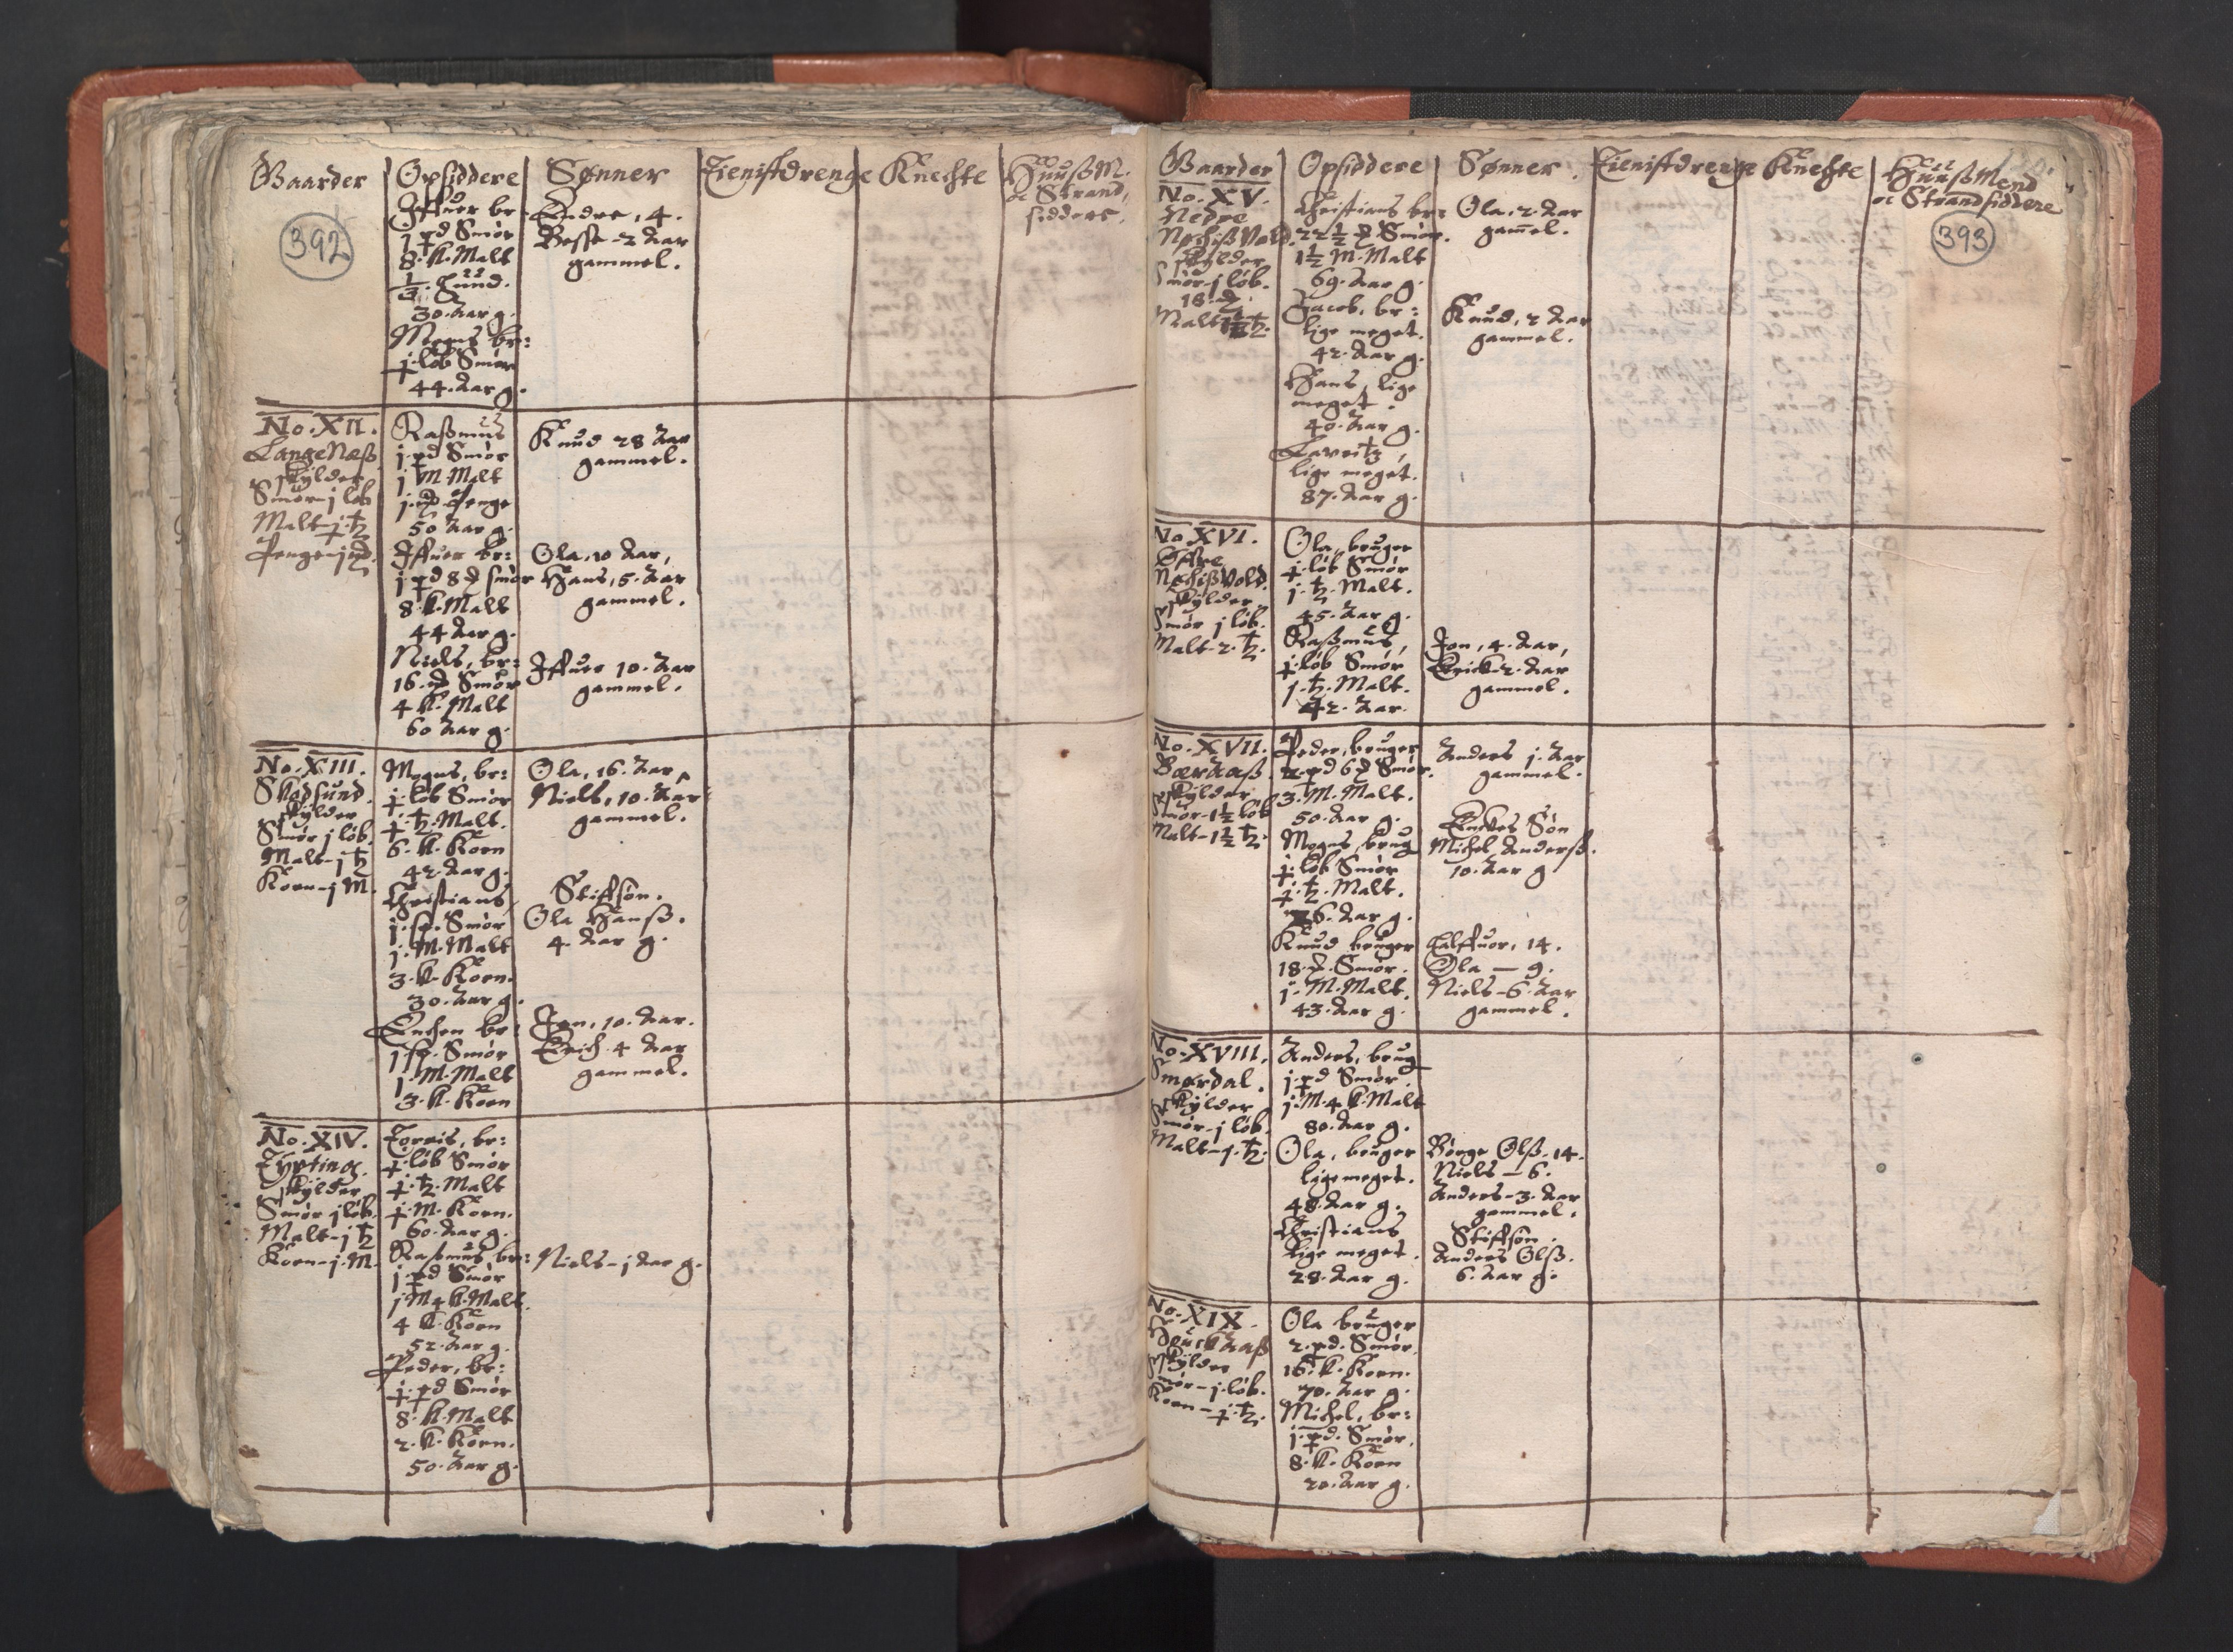 Gaarder
Opsiddere
Sønner
Tienistdrenge
Knechte
HuußM.
oc Strand
siddere.
392
Iffuer br
j pd Smør
8. K. Malt
1/3. Hund.
30. Aar g.
Mogns br:
j. løb Smør
44. Aar g.
Endre, 4.
Besse - 2 Aar
gammel.
No. XII.
LangeNæß
skylder
Smør - j løb
Malt - j. t
Penge - j
Raßmus
j. pd Smør
j M Malt
j. Penge
50 Aar g.
Iffuer br:
j pd 8 smør
8. K. Malt
44 Aar g.
Niels, br:
16. Smør
4 K. Malt
60 Aar g.
Knud 28 Aar
gammel.
Ola, 10 Aar,
Hans, 5. Aar
gammel.
Iffuer 10. Aar
gammel.
No. XIII.
Skodsund.
skylder
Smør j løb.
Malt - j t
Korn - j M.
Mogns, br:
j. løb Smør
j. t. Malt.
6. K. Korn
42 Aar g.
Christians,
j. sp. Smør
j. M. Malt
3. K. Korn.
30. Aar g.
Enchen br
j. sp. Smør
j. M. Malt
3. K. Korn
Ola, 16. Aar,
Niels, 10. Aar
gammel.
Stiffsøn.
Ola Hanß.
4. Aar g.
Jon, 10. Aar.
Erich. 4 Aar
gammel.
No. XIV.
skylder
Smør j løb.
Malt - j t
Korn - j. M.
br:
j. løb Smør
j. t. Malt
j. M. Korn.
60. Aar g.
Raßmus, br:
j. pd Smør
j M 4 K. Malt.
4 K. Korn
52. Aar g.
Peder, br:
j. pd Smør
8. K. Malt
2. K. Korn.
50. Aar g.
Niels - j Aar g.
Gaarder
Opsiddere
Sønner.
Tienistdrenge
Knechte
HuußMend
oc Strandsiddere
393
No. XV.
Nedre
skylder
Smør - j løb.
18.
Malt
Christians br:
22 1/2 Smør.
1 1/2 M. Malt
69. Aar g.
Jacob, br:
lige meget.
42. Aar g.
Hans, lige
meget.
40. Aar g.
Lavritz,
lige meget.
87. Aar g.
Ola, 2. Aar
gammel.
Knud, 2 Aar
gammel.
No XVI.
Øffre
skylder
Smør j løb.
Malt - 2. t.
Ola, bruger
j. løb Smør
j. t. Malt.
45. Aar g.
Raßmus,
j. løb Smør
j. t. Malt.
42. Aar.
Jon, 4. Aar,
Erick - 2. Aar
gammel.
No. XVII.
skylder
Smør - 1 1/2 løb
Malt - 1 1/2 t.
Peder, bruger
2. pd 6 Smør.
3. M. Malt.
50. Aar g.
Mogns, brug
j. løb Smør
j. t. Malt.
6. Aar g.
Knud bruger
18. Smør.
j. M. Malt.
43. Aar g.
Anders j. Aar
gammel.
Enckes Søn
Michel Anderß.
10. Aar g
14.
Ola — 9.
Niels - 6. Aar
gammel.
No. XVIII.
Smørdal.
skylder
Smør - j løb.
Malt - j. t.
Anders, brug
j. pd Smør.
j. M. 4 K. Malt
80. Aar g.
Ola, bruger
lige meget.
48. Aar g.
Christians
lige meget.
28. Aar g.
Børge Olß. 14.
Niels — 6.
Anders - 3. Aar
gammel.
Stiffsøn.
Anders Olß.
6. Aar g.
No. XIX.
skylder
Smør - j. løb.
Korn - j. t.
Ola bruger
2. pd. Smør.
16. K. Korn.
70. Aar g.
Michel, br:
j. pd. Smør.
8. K. Korn
20. Aar g.